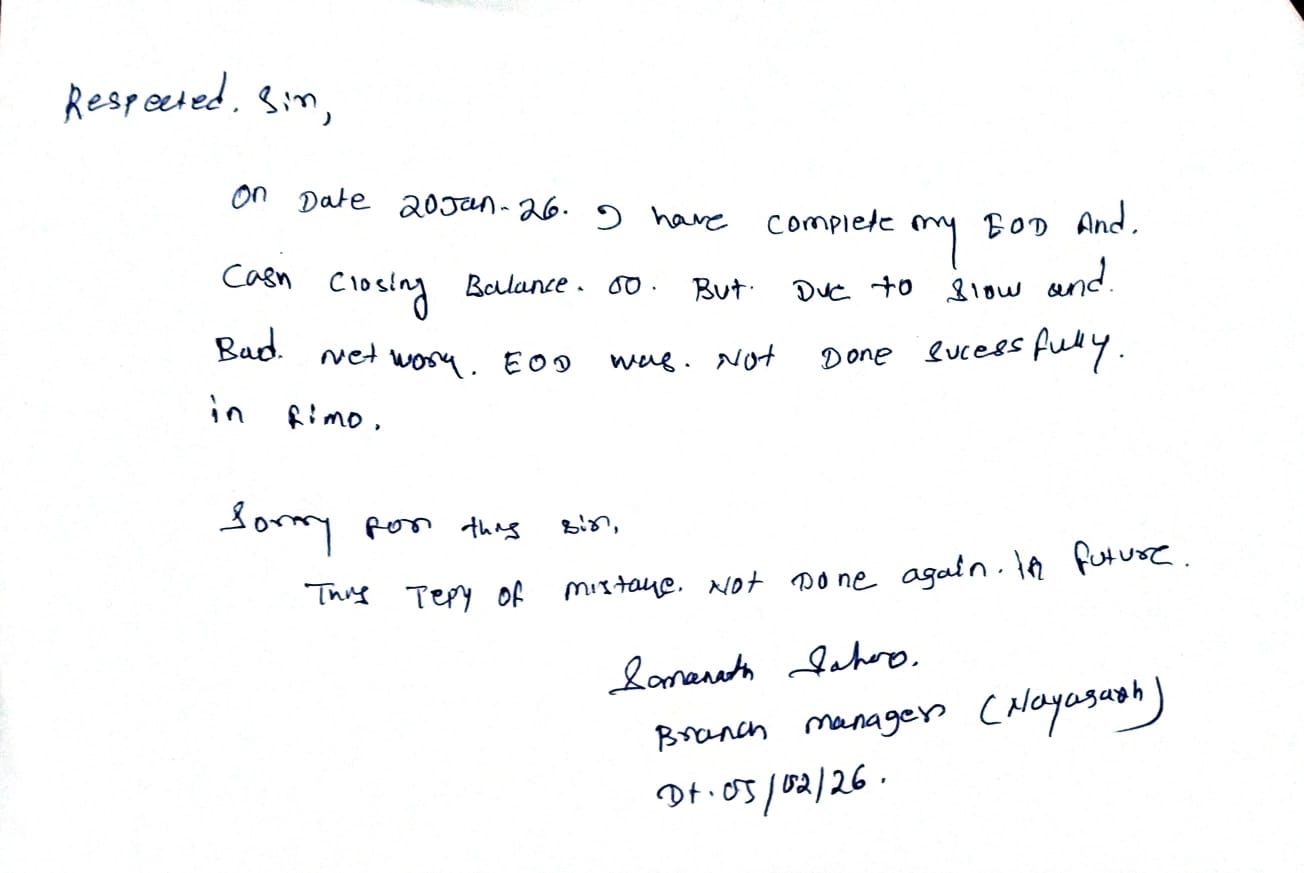 Respected. Sir,
On Date 20 Jan-26. I have complete my EOD And.
Cash Closing Balance. 00. But. Due to Slow and.
Bad. network. EOD was. Not Done Sucessfully.
in Fimo.
Sorry for this sir,
This Tepy of mistake. Not Done again. In future.
Somanath Sahoo.
Branch manager (Nayagarh)
Dt. 05/02/26.